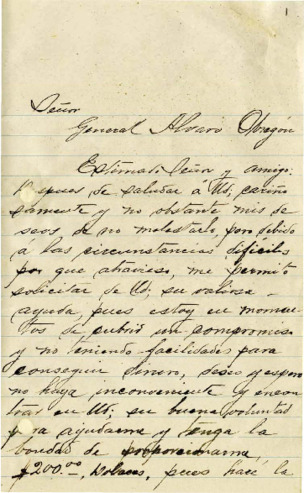 1
Señor
General Alvaro Obregón
Estimado Señor y amigo:
Despues de saludar á Ud; cariño
samente y no obstante mis de
seos de no molestarlo, pero debido
á las circunstancias dificiles
por que atravieso, me permito
solicitar de Ud; su valiosa
ayuda, pues estoy en momen
tos de cubrir un compromiso
y no teniendo facilidades para
conseguir dinero, deseo y espero
no haya inconveniente y encon
trar en Ud; su buena voluntad
para ayudarme y tenga la
bondad de proporcionarme,
$200.00, Dolares, pues hacé la